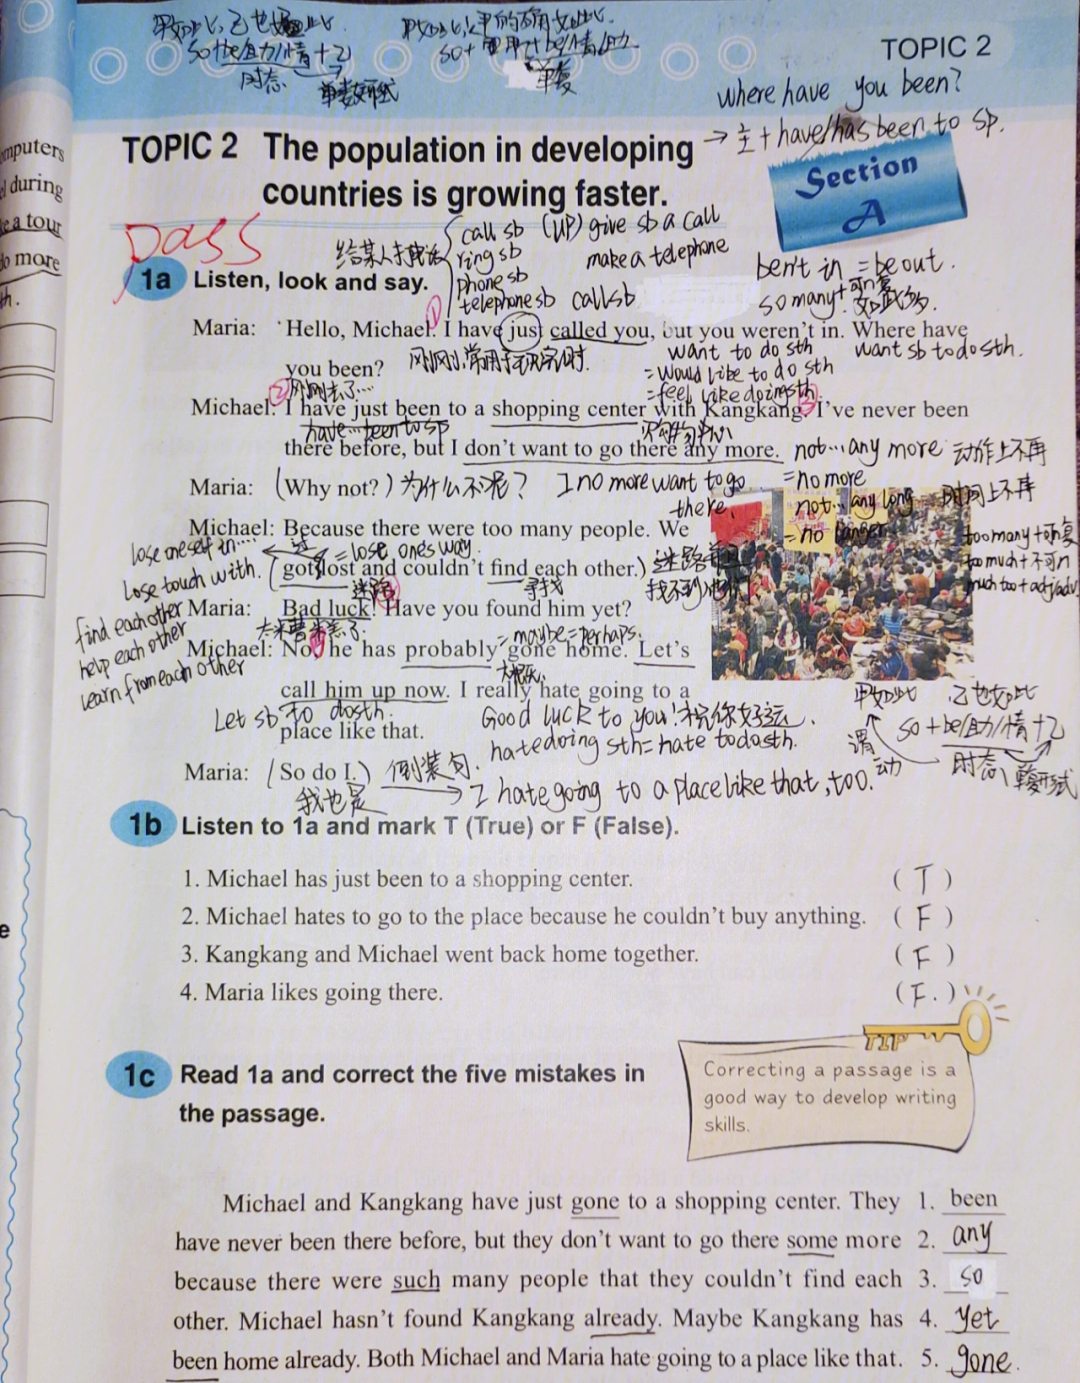 甲如此,乙也如此
so+be/助/情+乙
时态
单数形式
so+甲+be/情/助
单复
TOPIC 2
where have you been?
→ 主+have/has been to sp.
TOPIC 2 The population in developing
countries is growing faster.
Section
A
pass
call sb (UP) give sb a call
ring sb make a telephone
phone sb
telephone sb call sb
ben't in = be out.
so many+可n复 如此多.
1a Listen, look and say.
Maria: Hello, Michael. I have just called you, but you weren't in. Where have
you been?
want to do sth want sb to do sth.
= would like to do sth
= feel like doing sth
Michael: I have just been to a shopping center with Kangkang. I've never been
have…been to sp 购物中心
there before, but I don't want to go there any more. not…any more 动作上不再
Maria: (Why not?) 为什么不呢? I no more want to go = no more
there. not…any long 时间上不再
= no longer
Michael: Because there were too many people. We
lose oneself in…
= lose one's way.
got lost and couldn't find each other.) 迷路
寻找
lose touch with.
too many+可n复
too much+不可n
much too+adj/adv
find each other
help each other
learn from each other
Maria: Bad luck! Have you found him yet?
= maybe = perhaps.
Michael: No, he has probably gone home. Let's
call him up now. I really hate going to a
Let sb to do sth.
place like that.
Good luck to you! 祝你好运.
hate doing sth = hate to do sth.
甲如此 乙也如此
so+be/助/情+乙
谓动
时态
Maria: (So do I.) 倒装句.
我也是 → I hate going to a place like that, too.
1b Listen to 1a and mark T (True) or F (False).
1. Michael has just been to a shopping center. ( T )
2. Michael hates to go to the place because he couldn't buy anything. ( F )
3. Kangkang and Michael went back home together. ( F )
4. Maria likes going there. ( F. )
TIP
Correcting a passage is a
good way to develop writing
skills.
1c Read 1a and correct the five mistakes in
the passage.
Michael and Kangkang have just gone to a shopping center. They 1. been
have never been there before, but they don't want to go there some more 2. any
because there were such many people that they couldn't find each 3. so
other. Michael hasn't found Kangkang already. Maybe Kangkang has 4. yet
been home already. Both Michael and Maria hate going to a place like that. 5. gone.
mputers
during
e a tour
o more
th.
e